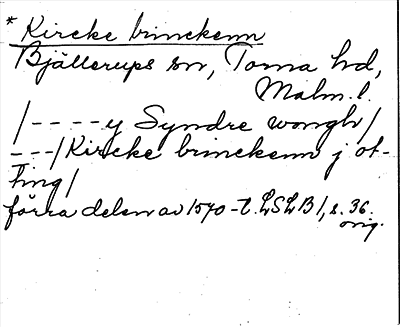 * Kircke brinckenn
Bjällerups sn, Torna hd,
Malm. l.
/----y Syndre wongh/
---/Kircke brinckenn j ot-
ting/
förra delen av 1570-t. LSLB 1, s. 36.
orig.